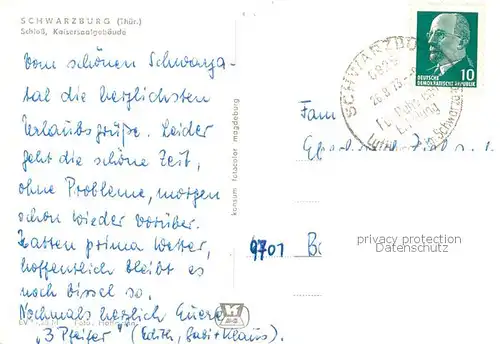 SCHWARZBURG (Thür.)
Schloß, Kaisersaalgebäude
Vom schönen Schwarza-
tal die herzlichsten
Urlaubsgrüße. Leider
geht die schöne Zeit,
ohne Probleme, morgen
schon wieder vorüber.
Hatten prima Wetter,
hoffentlich bleibt es
noch bissel so.
Nochmals herzlich Eure
„3 Pfeifer" (Edith, Gabi+Klaus).
konsum fotocolor magdeburg
DEUTSCHE
DEMOKRATISCHE REPUBLIK
10
Fam
9701
privacy protection
Datenschutz